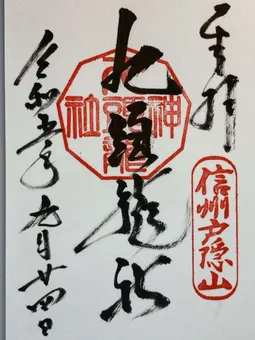 奉拝
信州戸隠山
九頭龍社
九頭龍神社
令和五年九月廿四日